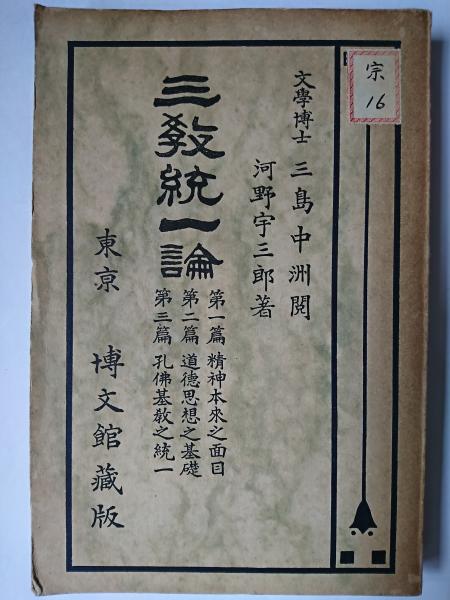 宗
16
文學博士 三島中洲閱
河野宇三郎著
三教統一論
第一篇 精神本來之面目
第二篇 道德思想之基礎
第三篇 孔佛基教之統一
東京 博文館藏版